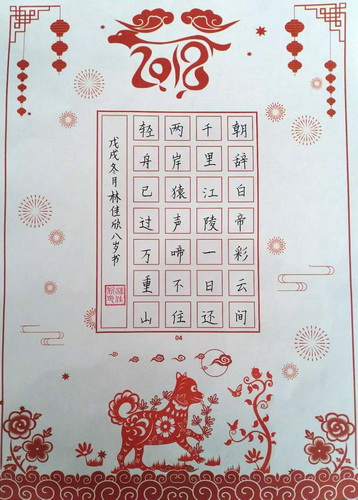 2018
朝辞白帝彩云间
千里江陵一日还
两岸猿声啼不住
轻舟已过万重山
戊戌冬月林佳欣八岁书
04